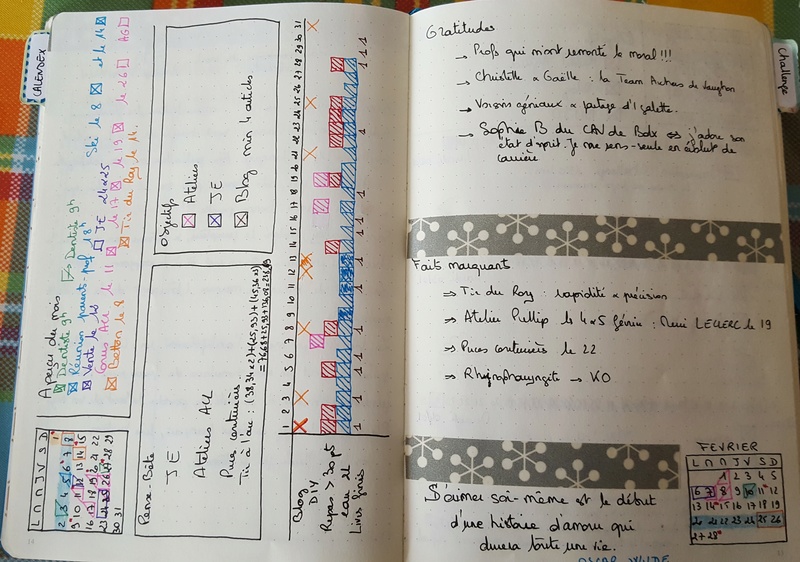 CALENDEX
Aperçu du mois
Dentiste 9h
Dentiste 9h
Réunion parents prof 18h
Vente le
JE 24 & 25
Ski le 8
et le 14
Cours ACL le 11
le 17
le 19
le 26
AG
Betton le 8
Tir du Roy le 14.
L M M J V S D
1
2 3 4 5 6 7 8
9 10 11 12 13 14 15
16 17 18 19 20 21 22
23 24 25 26 27 28 29
30 31
Objectifs
Ateliers
JE
Blog min 4 articles
Pense Bête
JE
Ateliers ACL
Puces couturières
Tir à l'arc :
1 2 3 4 5 6 7 8 9 10 11 12 13 14 15 16 17 18 19 20 21 22 23 24 25 26 27 28 29 30 31
Blog
DIY
Repas > 30 pts
eau 2L
Livres finis
1 1 1 1 1 1 1 1
Challenge
Gratitudes
→ Profs qui m'ont remonté le moral !!!
→ Christelle & Gaëlle : la Team Archers de
→ Voisins géniaux & partage d'1 galette.
→ Sophie B du CAV de Bodx ⇔ j'adore son
état d'esprit. Je me sens seule en début de
carrière
Faits marquants
⇒ Tir du Roy : rapidité & précision
⇒ Atelier Pullip les 4 & 5 février : Merci LECLERC le 19
⇒ Puces couturières le 22
⇒ Rhinopharyngite → KO
S'aimer soi-même est le début
d'une histoire d'amour qui
durera toute une vie.
OSCAR WILDE
FEVRIER
L M M J V S D
1 2 3 4 5
6 7 8 9 10 11 12
13 14 15 16 17 18 19
20 21 22 23 24 25 26
27 28